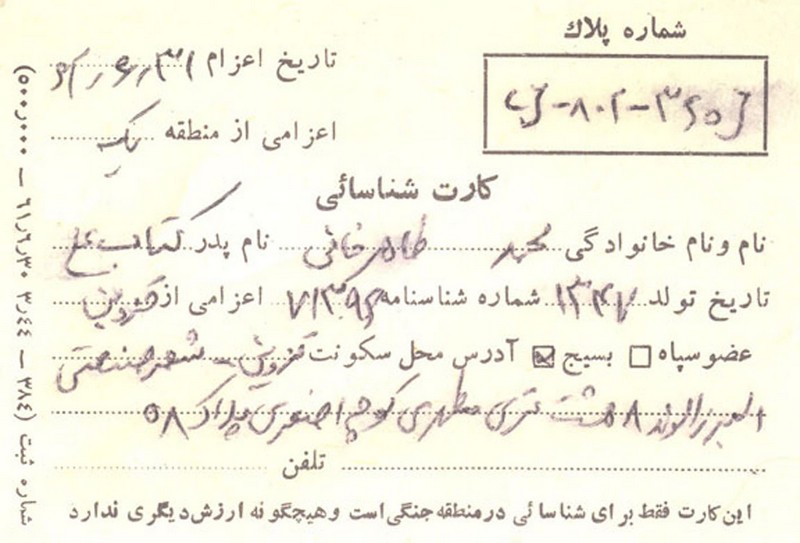 شماره پلاك
تاریخ اعزام
اعزامی از منطقه یک
کارت شناسائی
نام و نام خانوادگی محمد طاهرخانی نام پدر
تاریخ تولد ۱۳۴۷ شماره شناسنامه اعزامی از قزوین
عضو سپاه بسیج آدرس محل سکونت قزوین - شهر صنعتی
البرز الوند ۸ هشت متری مطهری کوچه اصغری پلاک ۵۸
تلفن
این کارت فقط برای شناسائی در منطقه جنگی است و هیچگونه ارزش دیگری ندارد
شماره ثبت (۳۸٤ — ٤٤ر۳ ۳۰ر٦ر٦۱ — ۰۰۰ر۵۰۰)